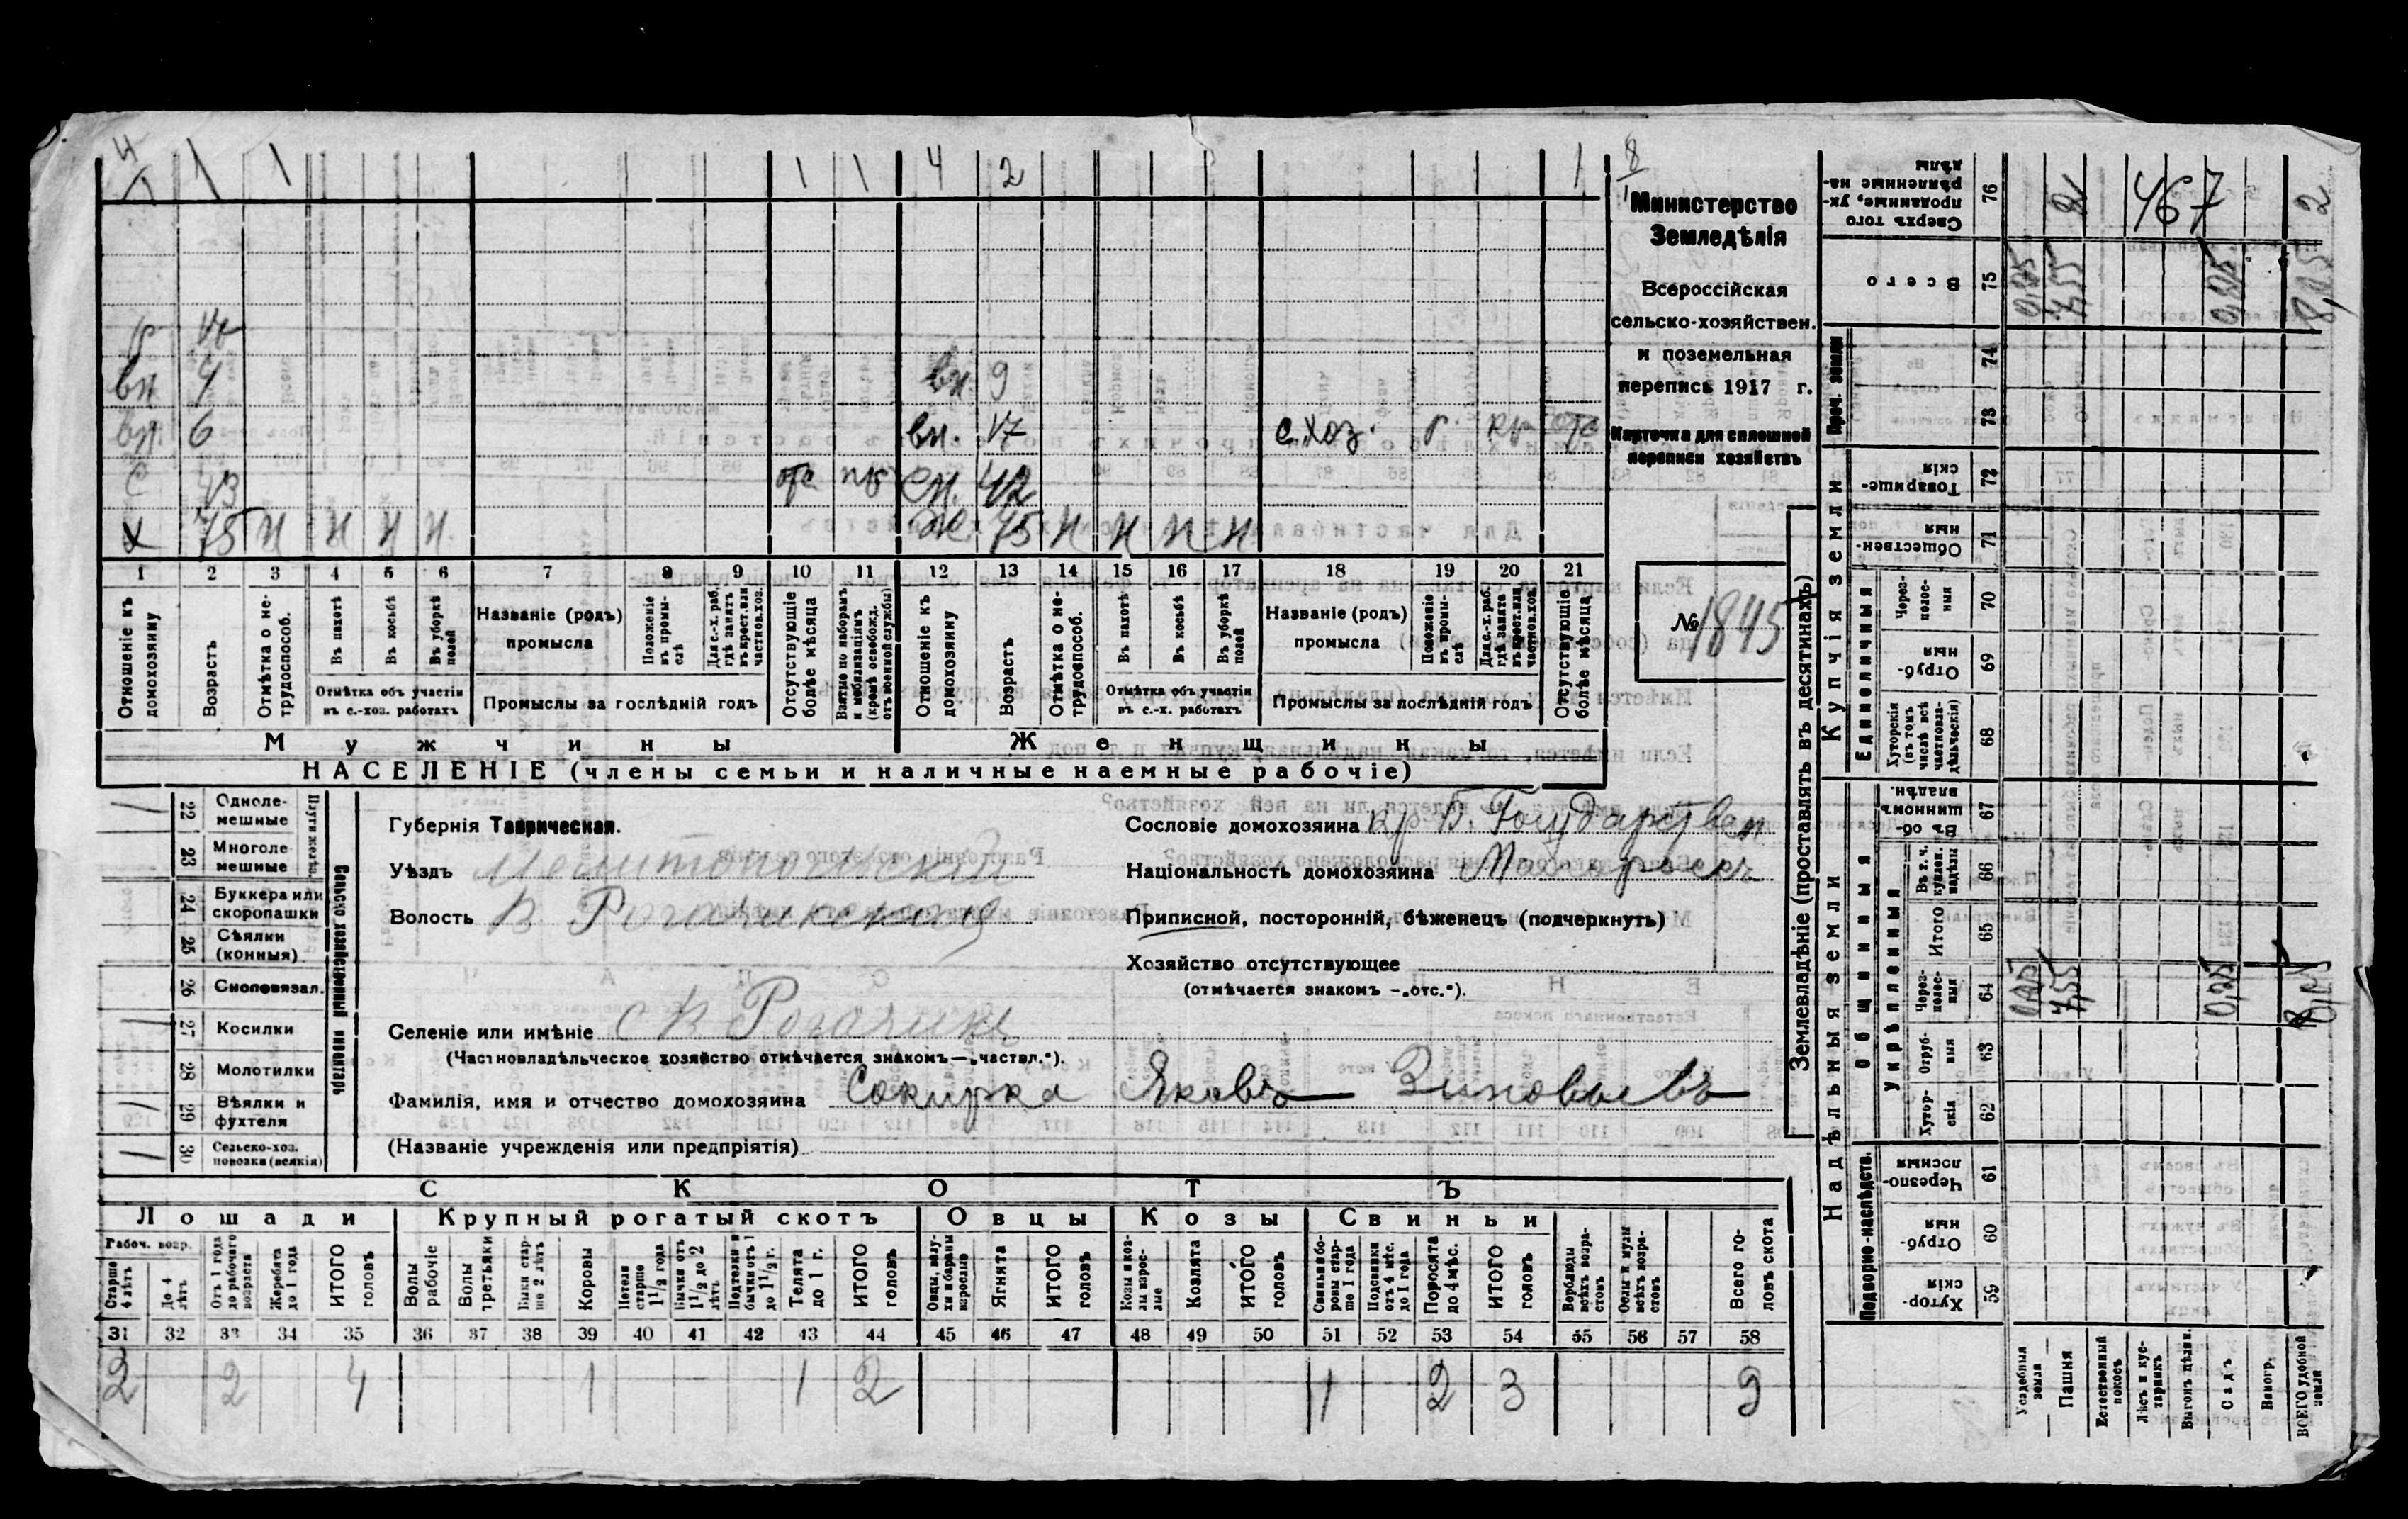 4 1 1 1 1 4 2 1 8/1
вн 4 вн. 9
вн. 6 вн. 17 с.хоз. г. кр отс
С 43 отс пв сн. 42
х 75 н н н н. ж 75 н н н н
1 2 3 4 5 6 7 8 9 10 11 12 13 14 15 16 17 18 19 20 21
Отношеніе къ домохозяину
Возрастъ
Отмѣтка о не-трудоспособ.
Въ пахотѣ
Въ косьбѣ
Въ уборкѣ полей
Отмѣтка объ участіи въ с.-хоз. работахъ
Названіе (родъ) промысла
Положеніе въ промы-слѣ
Для с.-х. раб. гдѣ занятъ въ крест. или частнов. хоз.
Промыслы за послѣдній годъ
Отсутствующіе болѣе мѣсяца
Взятые по наборамъ и мобилизаціямъ (кромѣ освобожд. отъ военной службы)
Отношеніе къ домохозяину
Возрастъ
Отмѣтка о не-трудоспособ.
Въ пахотѣ
Въ косьбѣ
Въ уборкѣ полей
Отмѣтка объ участіи въ с.-х. работахъ
Названіе (родъ) промысла
Положеніе въ промы-слѣ
Для с.-х. раб. гдѣ занята въ крест. или частнов. хоз.
Промыслы за послѣдній годъ
Отсутствующіе болѣе мѣсяца
Мужчины Женщины
НАСЕЛЕНІЕ (члены семьи и наличные наемные рабочіе)
Министерство
Земледѣлія
Всероссійская
сельско-хозяйствен.
и поземельная
перепись 1917 г.
Карточка для сплошной
переписи хозяйствъ
№ 1845
Сельско-хозяйственный инвентарь
22 Одноле-мешные
23 Многоле-мешные
24 Буккера или скоропашки
25 Сѣялки (конныя)
26 Сноповязал.
27 Косилки
28 Молотилки
29 Вѣялки и фухтеля
30 Сельско-хоз. повозки (всякія)
Губернія Таврическая.
Уѣздъ Мелитопольскій
Волость В Рогачикская
Селеніе или имѣніе с В Рогачикъ
(Частновладѣльческое хозяйство отмѣчается знакомъ—„частвл.“).
Фамилія, имя и отчество домохозяина Сокирка Яковъ Зиновьевъ
(Названіе учрежденія или предпріятія)
Сословіе домохозяина кр Б. Государствен
Національность домохозяина Малороссъ
Приписной, посторонній, бѣженецъ (подчеркнуть)
Хозяйство отсутствующее
(отмѣчается знакомъ —„отс.“).
СКОТЪ
Лошади Крупный рогатый скотъ Овцы Козы Свиньи
Рабоч. возр.
Старше 4 лѣтъ
До 4 лѣтъ
Отъ 1 года до рабочаго возраста
Жеребята до 1 года
ИТОГО головъ
Волы рабочіе
Волы третьяки
Быки стар-ше 2 лѣтъ
Коровы
Нетели старше 1½ года
Бычки отъ 1½ до 2 лѣтъ
Подтелки и бычки отъ 1 до 1½ г.
Телята до 1 г.
ИТОГО головъ
Овцы, валу-хи и бараны взрослые
Ягнята
ИТОГО головъ
Козы и коз-лы взрос-лые
Козлята
ИТОГО головъ
Свиньи и бо-ровы стар-ше 1 года
Подсвинки отъ 4 мѣс. до 1 года
Поросята до 4 мѣс.
ИТОГО головъ
Верблюды всѣхъ возра-стовъ
Ослы и мулы всѣхъ возра-стовъ
Всего го-ловъ скота
31 32 33 34 35 36 37 38 39 40 41 42 43 44 45 46 47 48 49 50 51 52 53 54 55 56 57 58
2 2 4 1 1 2 1 2 3 9
Землевладѣніе (проставлять въ десятинахъ)
Купчія земли
Надѣльныя земли
Проч. земли
Единоличныя
Общинныя
Укрѣпленныя
Подворно-наслѣдств.
Сверхъ того проданные, ук-рѣпленные на-дѣлы 76 467 2
Всего 75 0,25 7,55 0,25 8,05
74
73
Товарище-скія 72
Обществен-ныя 71
Через-полос-ныя 70
Отруб-ныя 69
Хуторскія (въ томъ числѣ всѣ частновла-дѣльческія) 68
Въ об-щинномъ владѣн. 67
Въ т. ч. куплен. надѣлы 66
Итого 65
Через-полос-ныя 64 0,25 7,55 0,25 8,05
Отруб-ныя 63
Хутор-скія 62
Черезпо-лосныя 61
Отруб-ныя 60
Хутор-скія 59
Усадебныя земли
Пашня
Естественный покосъ
Лѣсъ и кус-тарникъ
Выгонъ цѣлин.
Садъ
Виногр.
ВСЕГО удобной земли